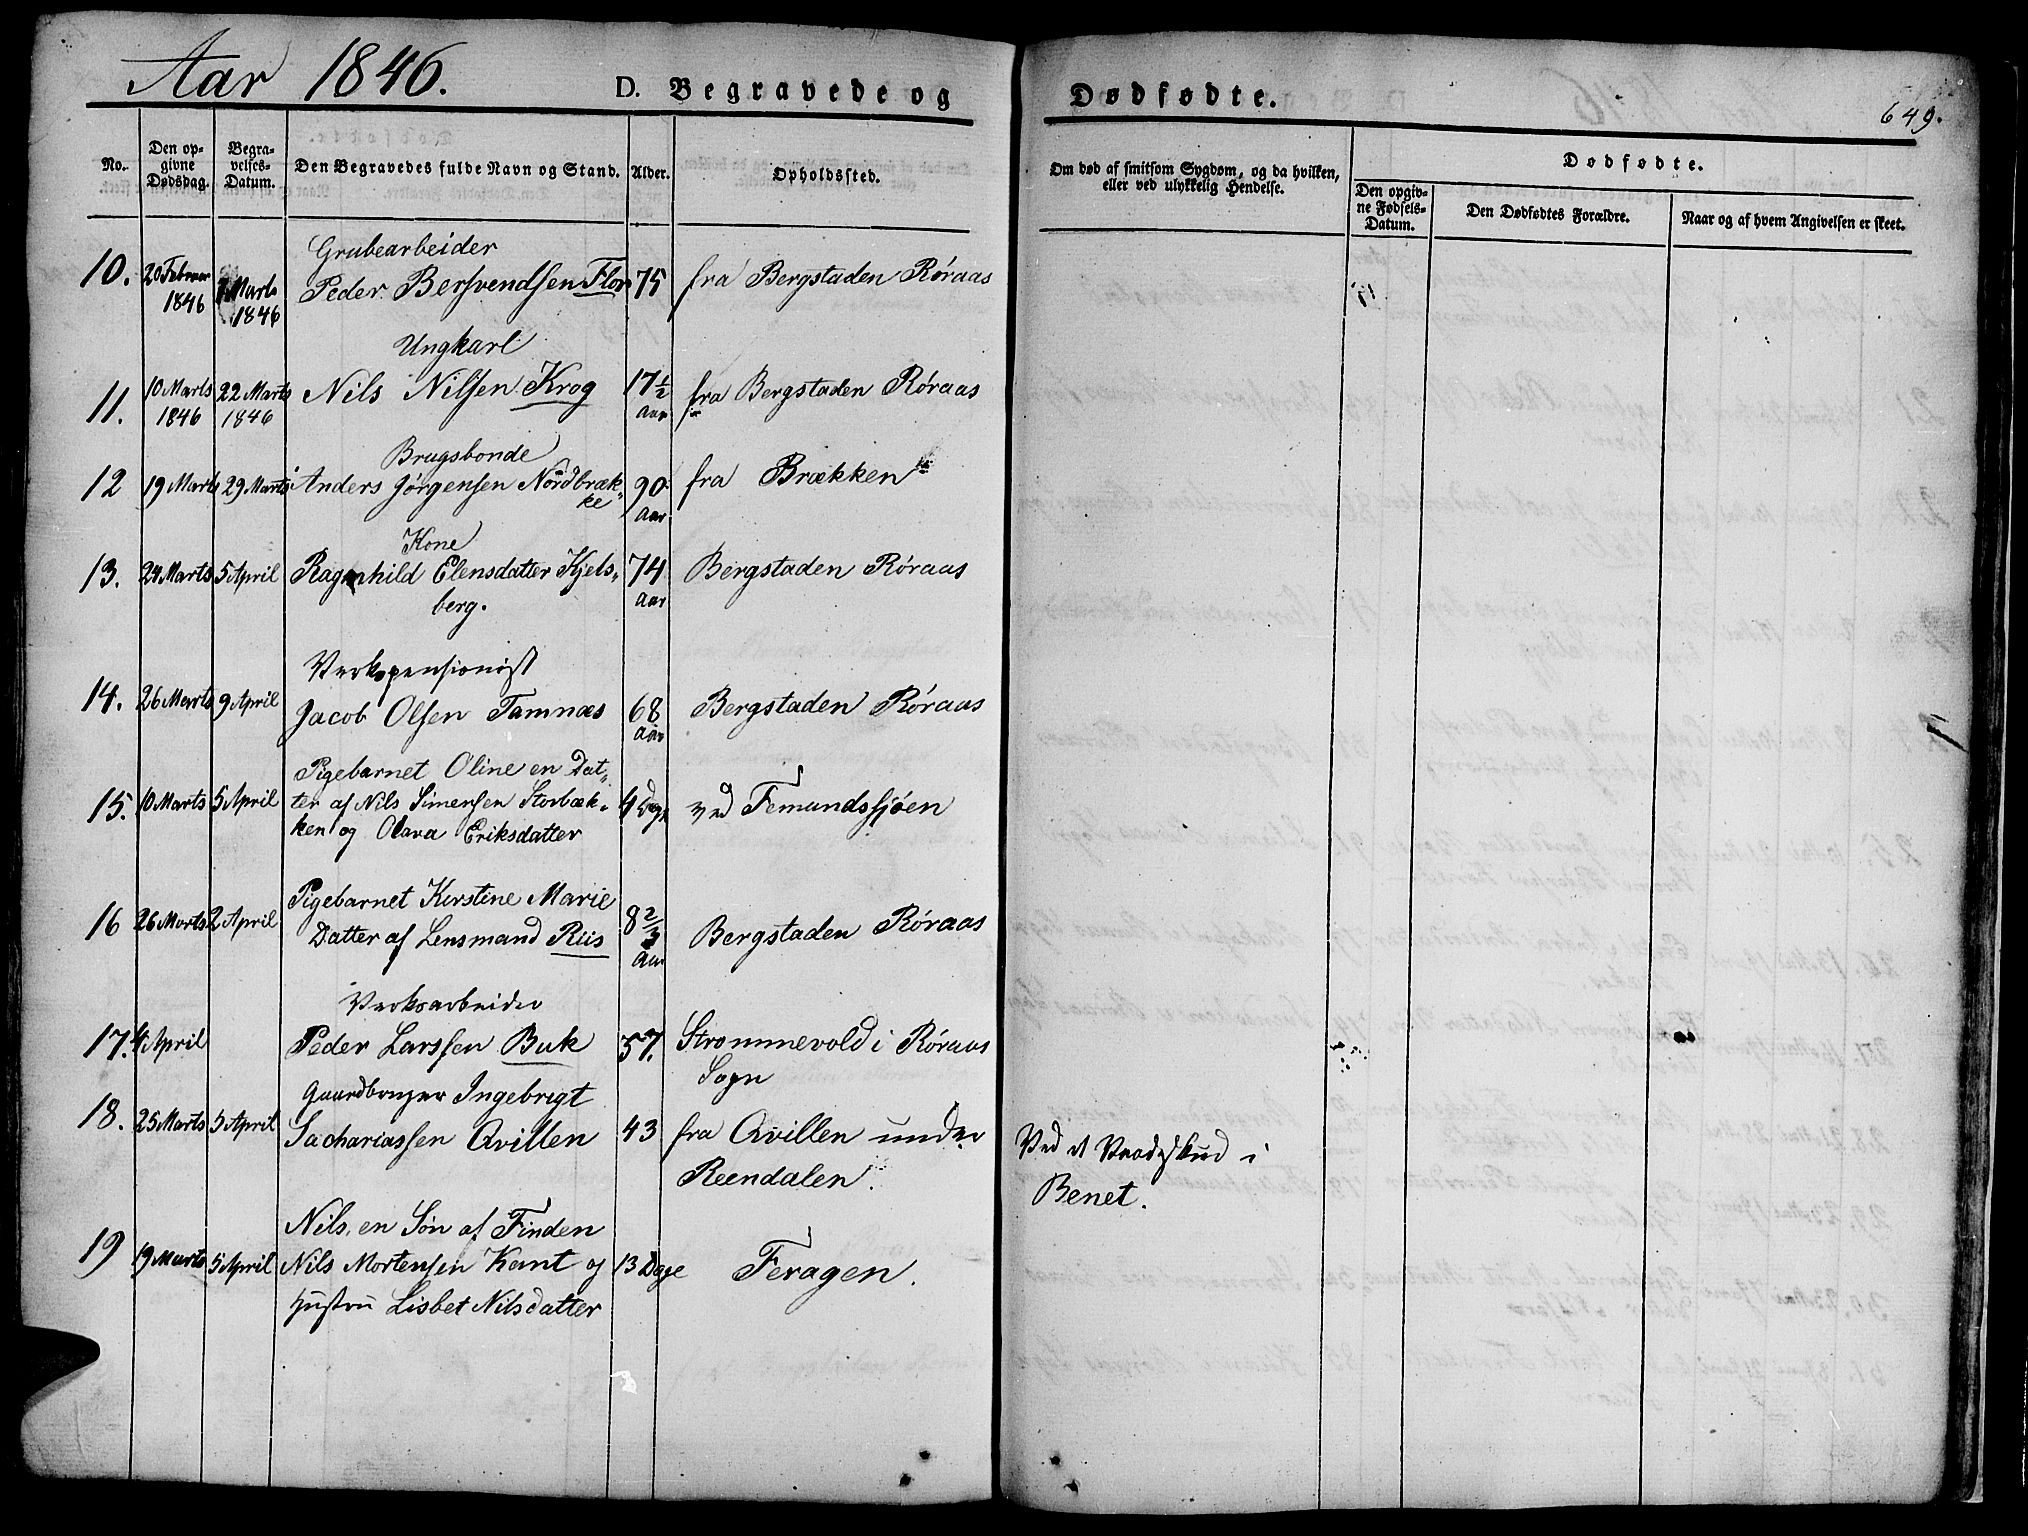 Aar 1846.
D. Begravede og
Dødfødte.
649.
No.
Den op-
givne
Dødsdag.
Begra-
velses-
Datum.
Den Begravedes fulde Navn og Stand.
Alder.
Opholdssted.
Om død af smitsom Sygdom, og da hvilken,
eller ved ulykkelig Hendelse.
Dødfødte.
Den opgiv-
ne Fødsels-
Datum.
Den Dødfødtes Forældre.
Naar og af hvem Angivelsen er skeet.
Grubearbeider
10. 20 Februar Marts Peder Bersvendsen Flor 75 fra Bergstaden Røraas
1846 1846
Ungkarl
11. 10 Marts 22 Marts Nils Nilsen Krog 17 1/2 fra Bergstaden Røraas
1846 1846 Aar
Brugsbonde
12 19 Marts 29 Marts Anders Jørgensen Nordbræk- 90 fra Brækken
ke Aar
Kone
13. 24 Marts 5 April Ragnhild Elensdatter Kjels- 74 Bergstaden Røraas
berg. Aar
Verkspensionist
14. 26 Marts 9 April Jacob Olsen Tamnæs 68 Bergstaden Røraas
Aar
Pigebarnet Oline en Dat-
15. 10 Marts 5 April ter af Nils Simensen Storbæk- 4 Dage ved Femundssjøen
ken og Olava Eriksdatter
Pigebarnet Kirstine Marie
16 26 Marts 2 April Datter af Lensmand Riis 8 2/3 Bergstaden Røraas
Aar
Verksarbeider
17. 4 April Peder Larssen Buk 57. Strømmevold i Røraas
Sogn
Gaardbruger Ingebrigt
18. 25 Marts 5 April Sachariassen Qvillen 43 fra Qvillen under
Reendalen.
Ved et Vaadeskud i
Benet.
Nils, en Søn af Finden
19 19 Marts 5 April Nils Mortensen Kant og 13 Dage Feragen.
Hustru Lisbet Nilsdatter